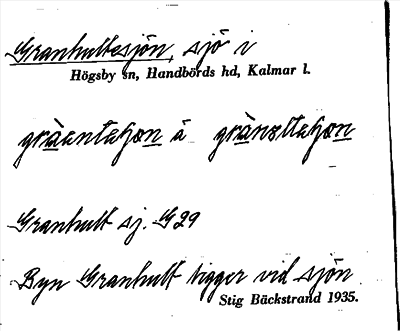 Granhultesjön, sjö i
Högsby sn, Handbörds hd, Kalmar l.
å
Granhult sj. G29
Byn Granhult ligger vid sjön
Stig Bäckstrand 1935.